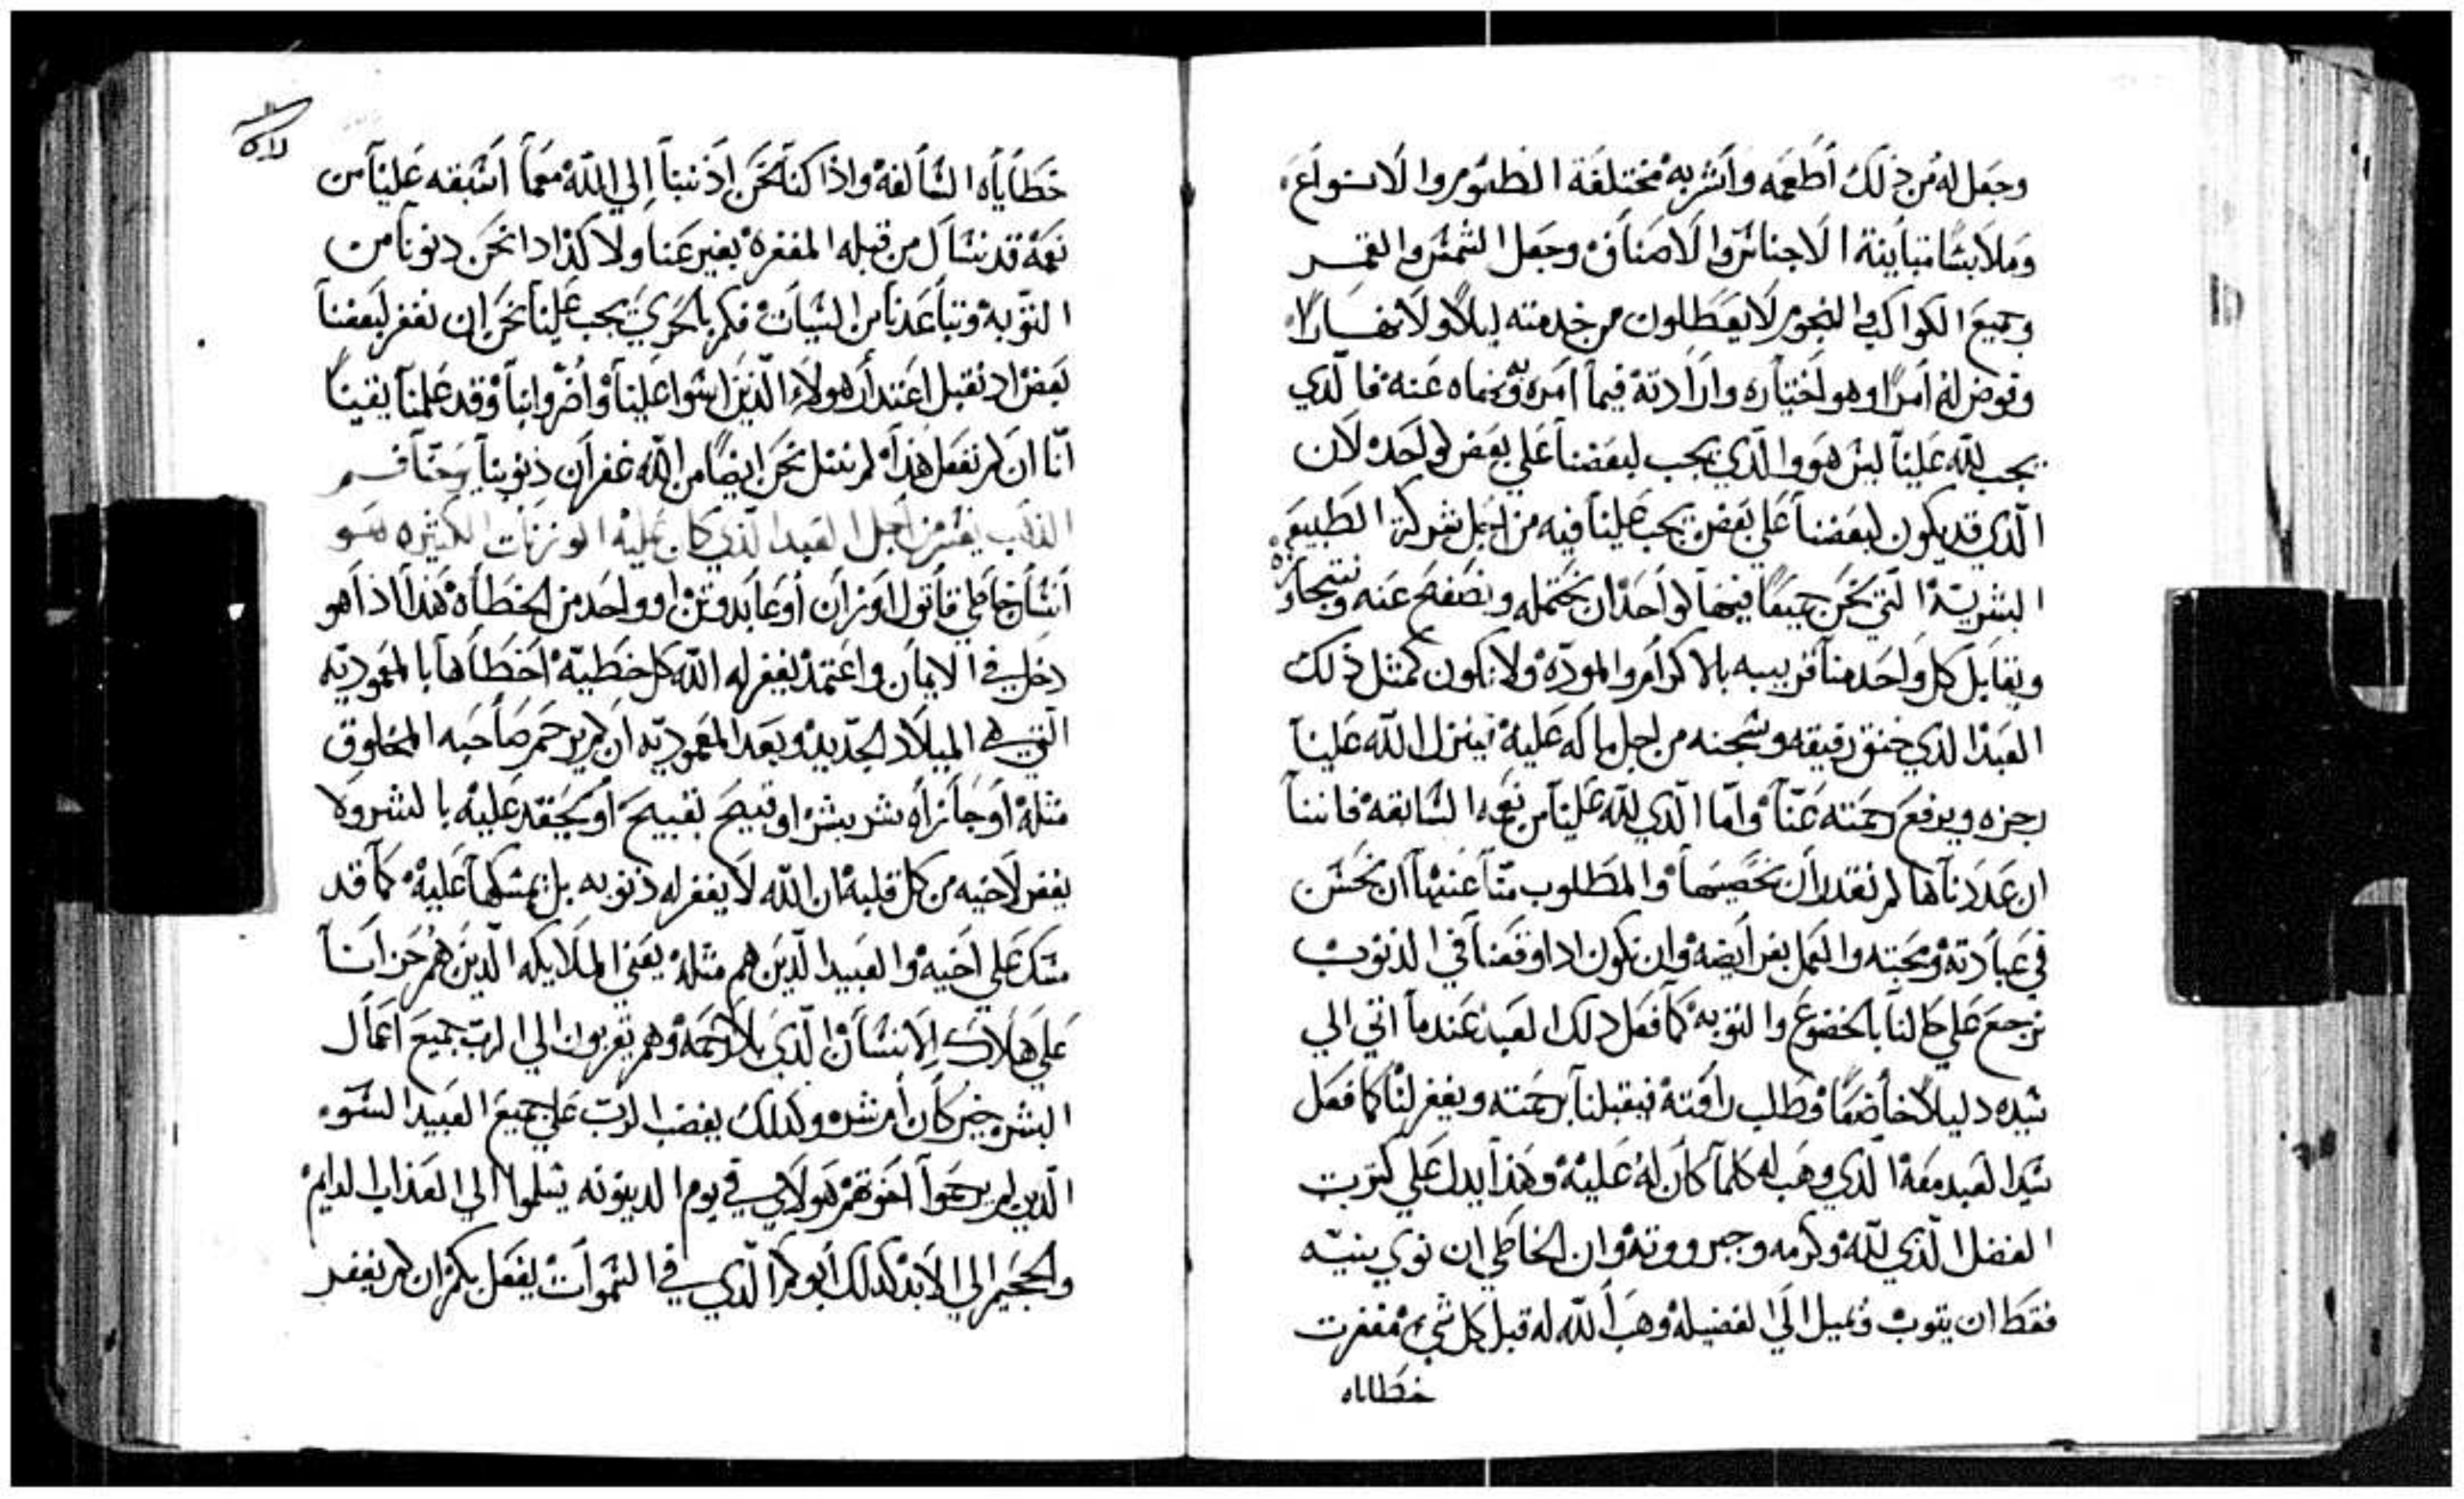 وجعل له من ذلك أطعمه وأشربه مختلفة الطعوم والانواع
وملابسا متباينة الاجناس والاصناف وجعل الشمس والقمر
وجميع الكواكب والنجوم لا يعطلون من خدمته ليلاً ولا نهاراً
وفوض له امراً وهو اختياره وارادته فيما امره ونهاه عنه فالذي
يجب لله علينا ليس هو والذي يجب لبعضنا علي بعض لواحد لان
الذي قد يكون لبعضنا علي بعض يجب علينا فيه من اجل شركة الطبيعه
البشرية التي نحن جميعاً فيها لواحد ان نحتمله ونصفح عنه ونتجاوز
ويقابل كل واحد منا قريبه بالاكرام والموده ولا نكون كمثل ذلك
العبد الذي خنق رفيقه وسجنه من اجل ماله عليه فينزل الله علينا
رجزه ويرفع رحمته عنا واما الذي لله علينا من نعمه السابقه فاننا
ان عددناها لم نقدر ان نحصيها والمطلوب منا عنها ان نحسن
في عبادته ومحبته والعمل بفرايضه وان نكون ادا وقعنا في الذنوب
نرجع علي حالنا بالخضوع والتوبه كما فعل دلك العبد عندما اتي الي
سيده دليلاً خاضعاً وطلب رافته فيقبلنا برحمته ويغفر لنا كما فعل
سيد العبد معه الذي وهب له كلما كان له عليه وهذا يدل علي كترت
الفضل الذي لله وكرمه وجبروته وان الخاطي ان نوي بنيته
فقط ان يتوب ويميل الي الفضيله وهب الله له قبل كل شي مغفرت
خطاياه
خطاياه السالفه واذا كنا نحن اذنبنا إلي الله معما اسبقه علينا من
نعمة قد نسال من قبله المغفره بغير عنا ولا كد ادا نحن دنونا من
التوبه وتباعدنا من السيات فكم بالحري يجب علينا نحن ان نغفر لبعضنا
بعض اد نقبل اعتدار هولاء الذين اسوا علينا واضروا بنا وقد علمنا يقيناً
انا ان لم نفعل هذا لم ننل نحن ايضاً من الله غفران ذنوبنا
العبد الذي كان عليه الوزنات الكثيره هو
انسان خاطي قاتول او زان أو عابد وتن او واحد من الخطاه هذا اذا هو
دخل في الايمان واعتمد يغفر له الله كل خطية اخطاها بالمعموديه
التي هي الميلاد الجديد وبعد المعموديه ان لم يرحم صاحبه المخلوق
مثله أو جازاه شر بشر او قبيح بقبيح أو يحقد عليه بالشر ولا
يغفر لاخيه من كل قلبه ان الله لا يغفر له ذنوبه بل يمسكها عليه كما قد
مسك علي اخيه والعبيد الذين هم مثله يعني الملايكه الذين هم حزانا
علي هلاك الانسان الذي بلا رحمة وهم يقربون الي الرب جميع اعمال
البشر خير كان أم شر وكدلك يغضب الرب علي جميع العبيد السوء
الذين لم يرحموا اخوتهم هولاي في يوم الدينونه يسلموا الي العذاب الدايم
والجحيم الي الابد كدلك أبوكم الذي في السموات يفعل بكم ان لم يغفر